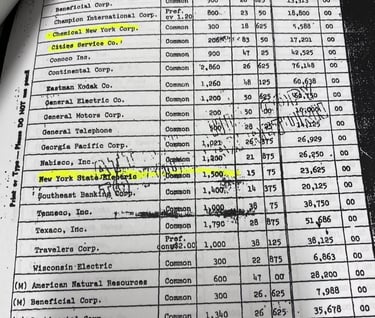 Beneficial Corp. Common 300
Champion International Corp. Pref. cv 1.20 800 23 50 18,800 00
Chemical New York Corp. Common 300 18 625 5,588 00
Cities Service Co. Common 83 50 17,201 00
Conoco Inc. Common 900 47 25 42,525 00
Continental Corp. Common 2,860 26 625 76,148 00
Eastman Kodak Co. Common 1,260 48 125 60,638 00
General Electric Co. Common 1,200 50 625 00
General Motors Corp. Common 200 50 00 00
General Telephone Common 00
Georgia Pacific Corp. Common 1,021 26 375 26,929 00
Nabisco, Inc. Common 1,200 21 875 26,250 00
New York State Electric Common 1,500 15 75 23,625 00
Southeast Banking Corp. Common 1,400 14 375 20,125 00
Tenneco, Inc. Common 1,000 38 75 38,750 00
Texaco, Inc. Common 1,790 28 875 51,686 00
Travelers Corp. Pref. conv$2.00 1,000 38 125 38,125 00
Wisconsin Electric Common 300 22 875 6,863 00
(M) American Natural Resources Common 600 47 00 28,200 00
(M) Beneficial Corp. Common 300 26. 625 7,988 00
Common 1,340 26 625 35,678 00
Print or Type — Please DO NOT use pencil